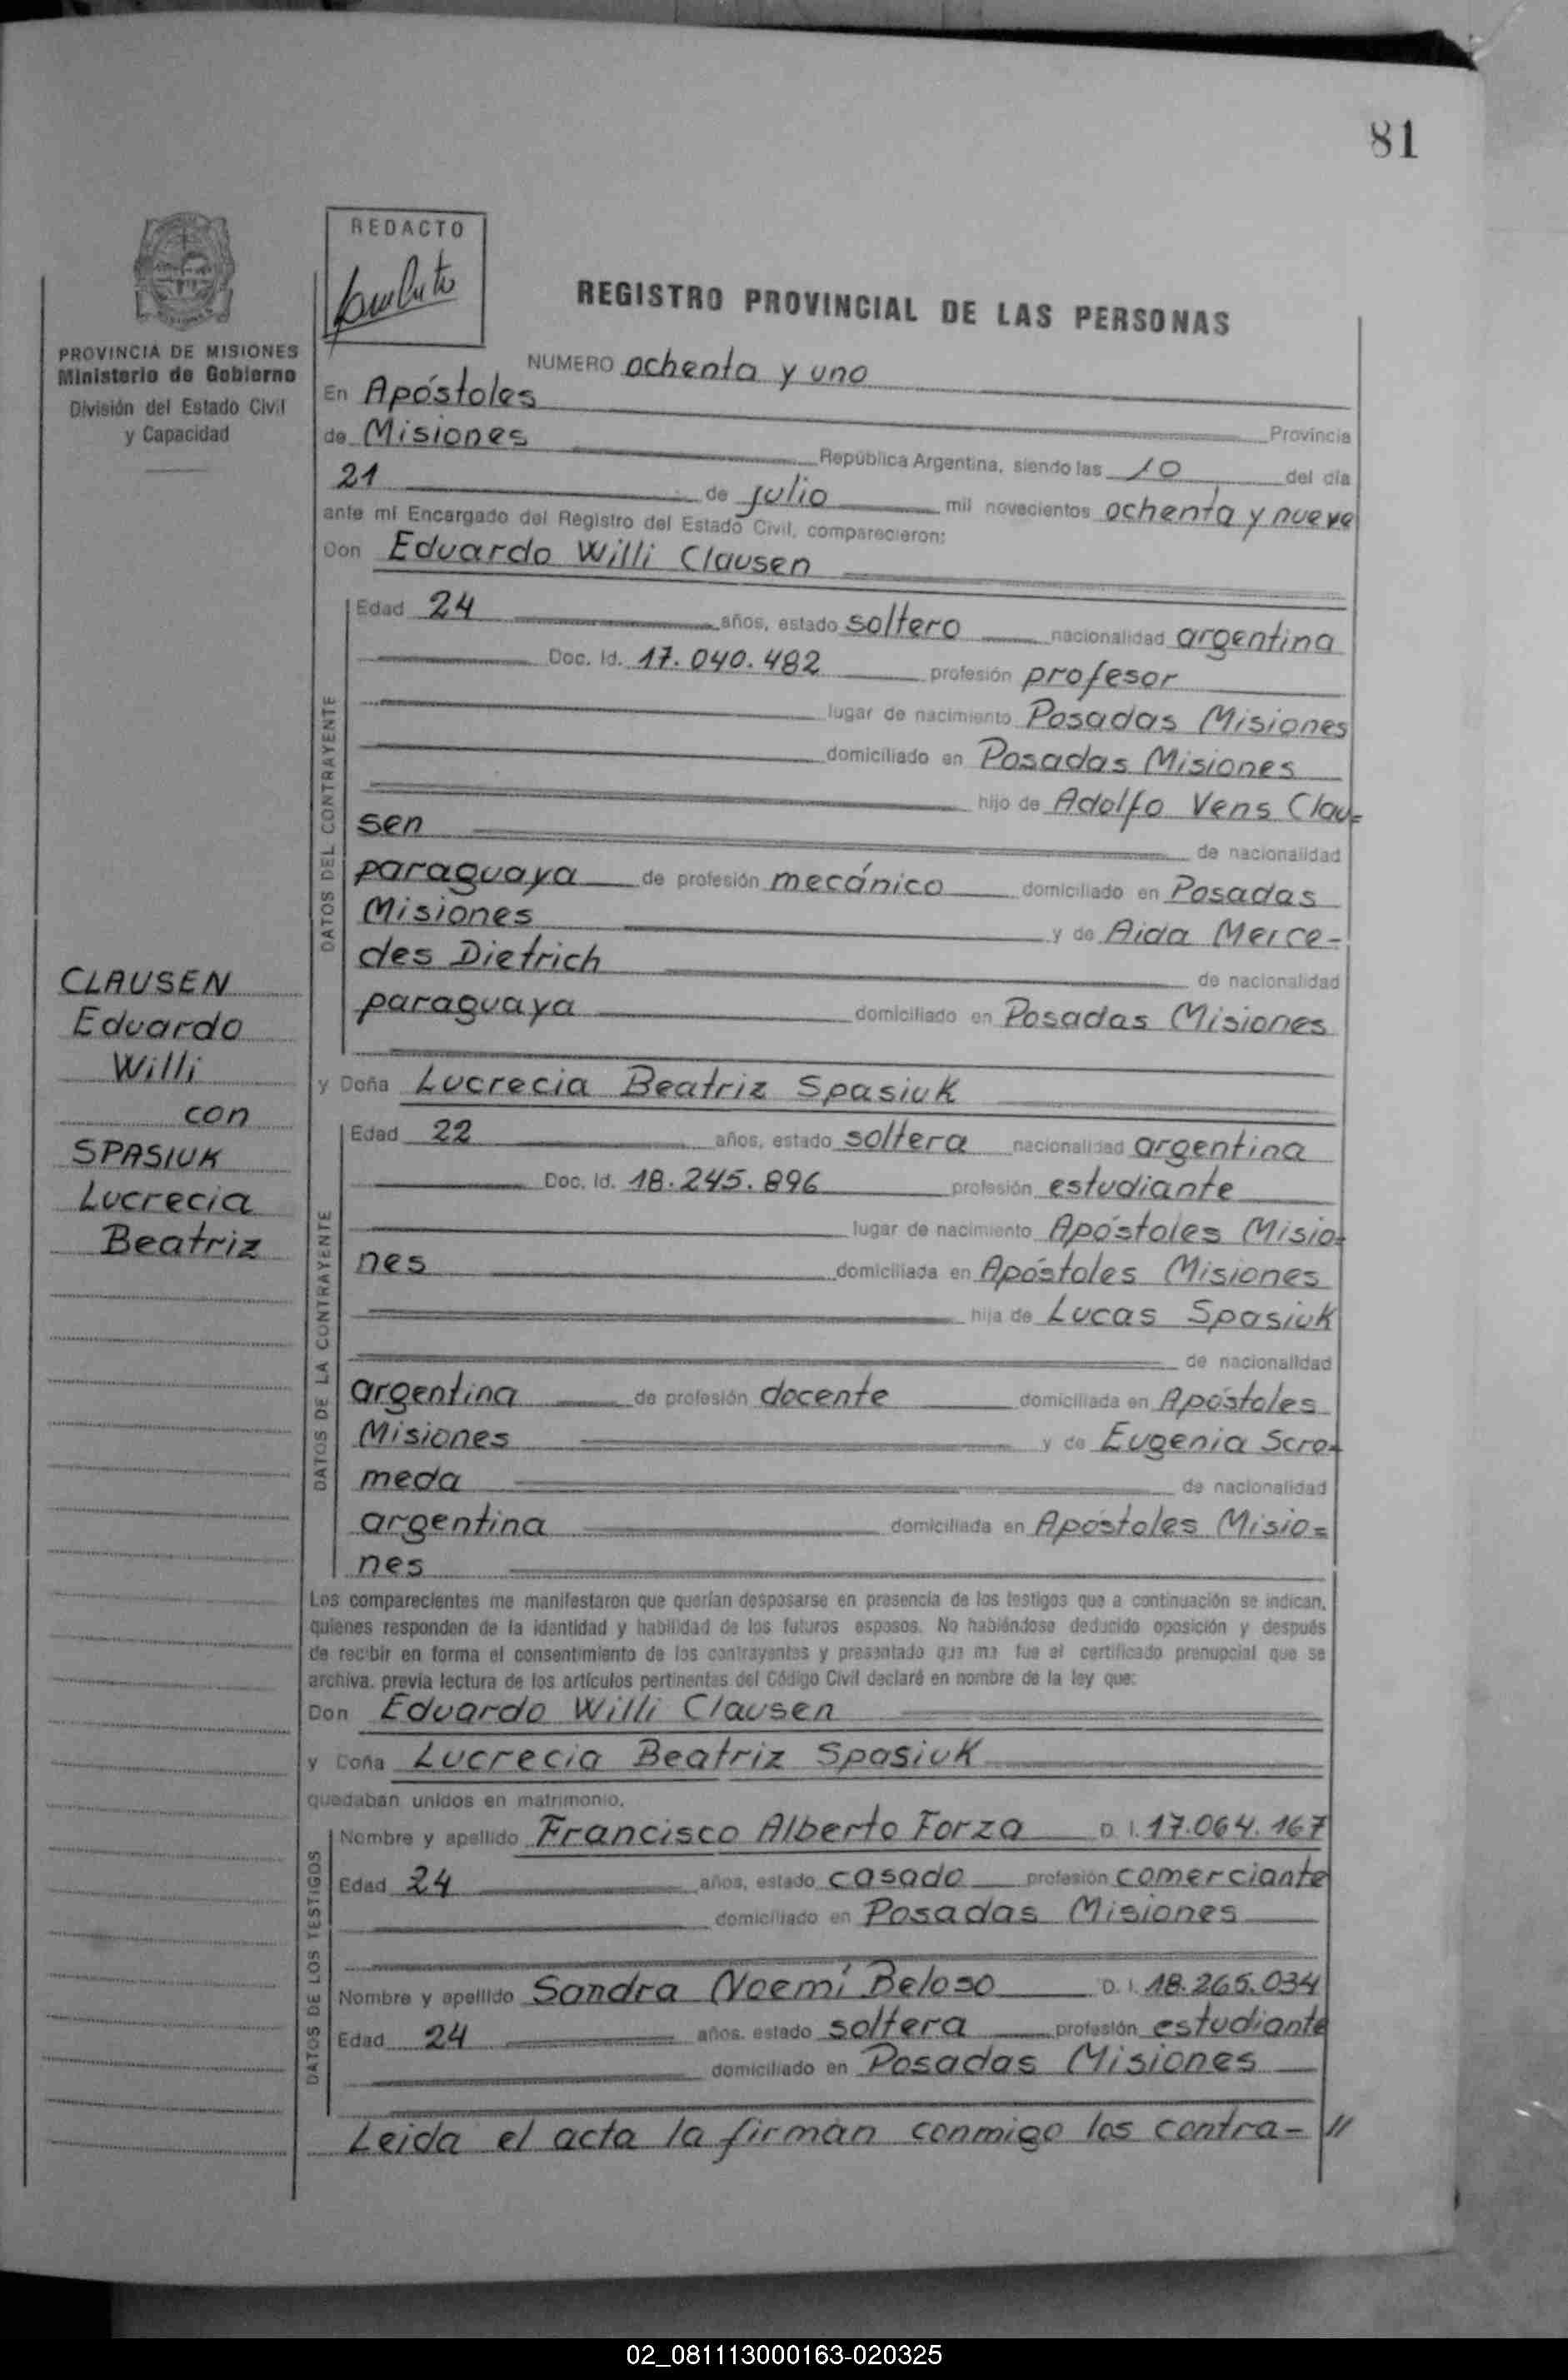 81
REDACTO
PROVINCIA DE MISIONES
Ministerio de Gobierno
División del Estado Civil
y Capacidad
CLAUSEN
Eduardo
Willi
con
SPASIUK
Lucrecia
Beatriz
REGISTRO PROVINCIAL DE LAS PERSONAS
NUMERO ochenta y uno
En Apóstoles Provincia
de Misiones República Argentina, siendo las 10 del día
21 de julio mil novecientos ochenta y nueve
ante mi Encargado del Registro del Estado Civil, comparecieron:
Don Eduardo Willi Clausen
DATOS DEL CONTRAYENTE
Edad 24 años, estado soltero nacionalidad argentina
Doc. Id. 17.040.482 profesión profesor
lugar de nacimiento Posadas Misiones
domiciliado en Posadas Misiones
hijo de Adolfo Vens Clau=
sen de nacionalidad
paraguaya de profesión mecánico domiciliado en Posadas
Misiones y de Aida Merce-
des Dietrich de nacionalidad
paraguaya domiciliado en Posadas Misiones
y Doña Lucrecia Beatriz Spasiuk
DATOS DE LA CONTRAYENTE
Edad 22 años, estado soltera nacionalidad argentina
Doc. Id. 18.245.896 profesión estudiante
lugar de nacimiento Apóstoles Misio=
nes domiciliada en Apóstoles Misiones
hija de Lucas Spasiuk
de nacionalidad
argentina de profesión docente domiciliada en Apóstoles
Misiones y de Eugenia Scro=
meda de nacionalidad
argentina domiciliada en Apóstoles Misio=
nes
Los comparecientes me manifestaron que querían desposarse en presencia de los testigos que a continuación se indican,
quienes responden de la identidad y habilidad de los futuros esposos. No habiéndose deducido oposición y después
de recibir en forma el consentimiento de los contrayentes y presentado que me fue el certificado prenupcial que se
archiva, previa lectura de los artículos pertinentes del Código Civil declaré en nombre de la ley que:
Don Eduardo Willi Clausen
y Doña Lucrecia Beatriz Spasiuk
quedaban unidos en matrimonio.
DATOS DE LOS TESTIGOS
Nombre y apellido Francisco Alberto Forza D. I. 17.064.167
Edad 24 años, estado casado profesión comerciante
domiciliado en Posadas Misiones
Nombre y apellido Sandra Noemí Beloso D. I. 18.265.034
Edad 24 años, estado soltera profesión estudiante
domiciliado en Posadas Misiones
Leida el acta la firman conmigo los contra- //
02_081113000163-020325